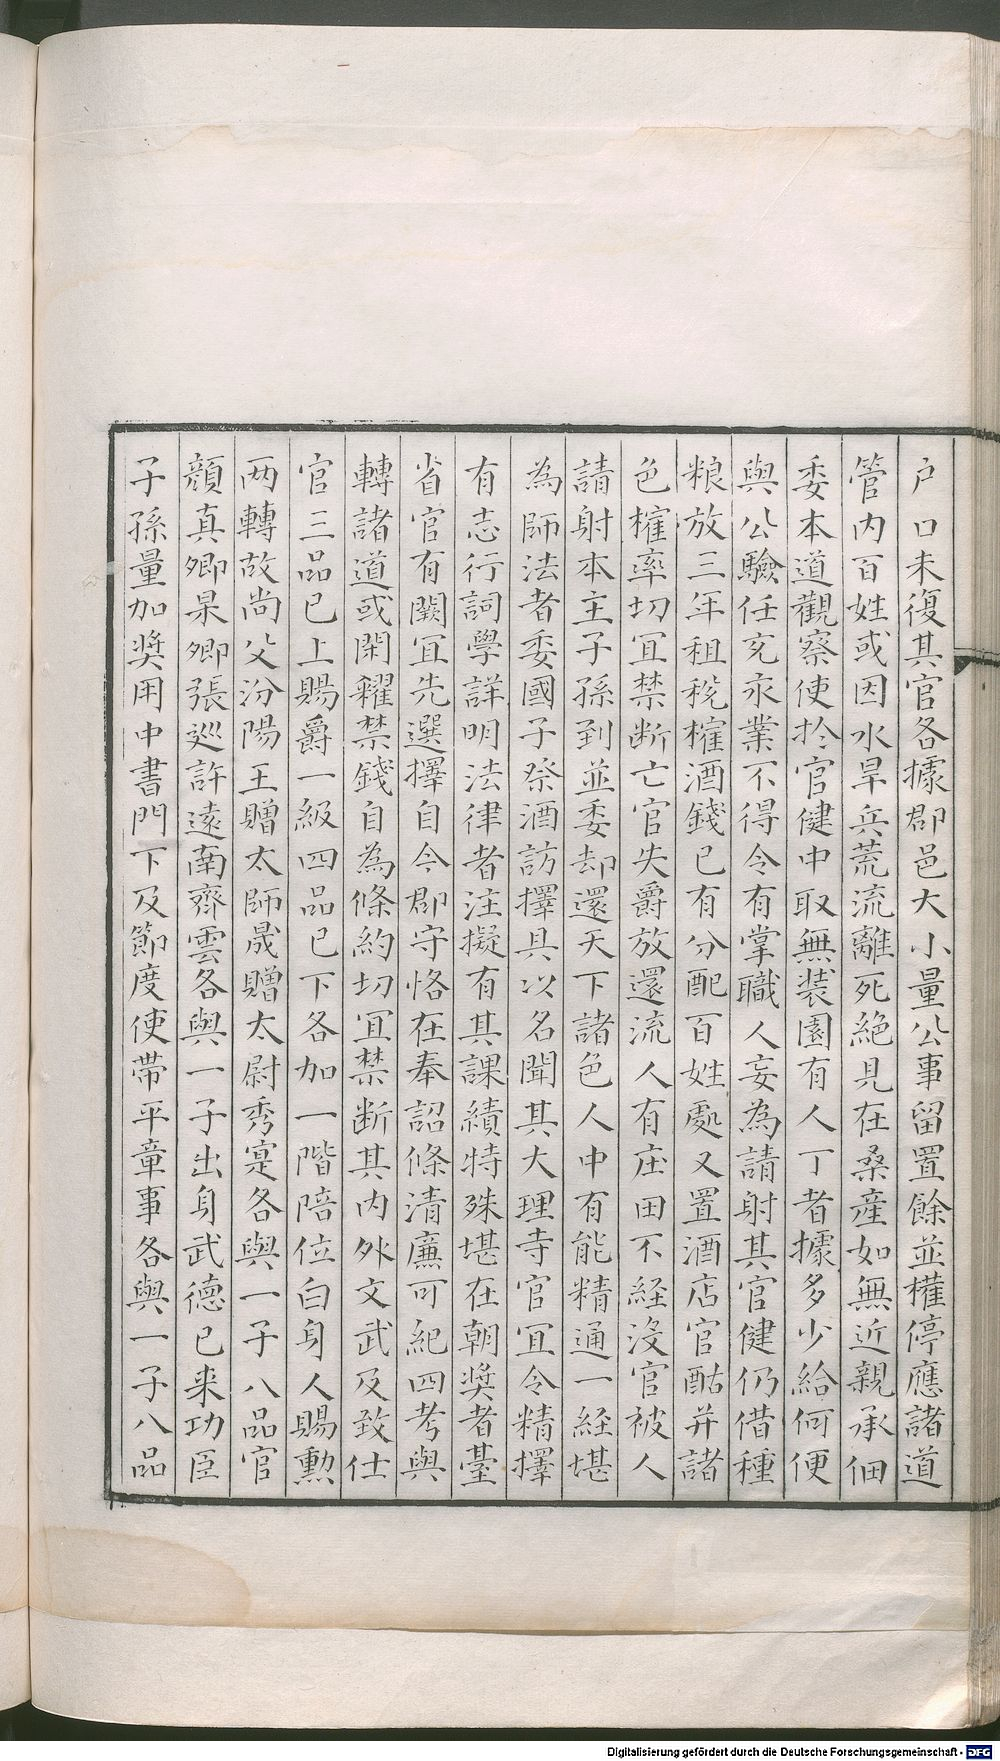 户口未復其官各據郡邑大小量公事留置餘並權停應諸道
管内百姓或因水旱兵荒流離死絶見在桑産如無近親承佃
委本道觀察使扵官健中取無裝園有人丁者據多少給何便
與公驗任充永業不得令有掌職人妄為請射其官健仍借種
粮放三年租税榷酒錢已有分配百姓䖏又置酒店官酤并諸
色榷率切冝禁断亡官失爵放還流人有庄田不經沒官被人
請射本主子孫到並委却還天下諸色人中有能精通一經堪
為師法者委國子祭酒訪擇具以名聞其大理寺官冝令精擇
有志行詞學詳明法律者注擬有其課績特殊堪在朝奨者臺
省官有闕冝先選擇自今郡守恪在奉詔條清廉可紀四考與
轉諸道或閑糴禁錢自為條約切冝禁断其内外文武及致仕
官三品已上賜爵一級四品已下各加一階陪位白身人賜勲
两轉故尚父汾陽王贈太師晟贈太尉秀寔各與一子八品官
顔真卿杲卿張廵許遠南霽雲各與一子出身武德已来功臣
子孫量加奨用中書門下及節度使带平章事各與一子八品
Digitalisierung gefördert durch die Deutsche Forschungsgemeinschaft - DFG